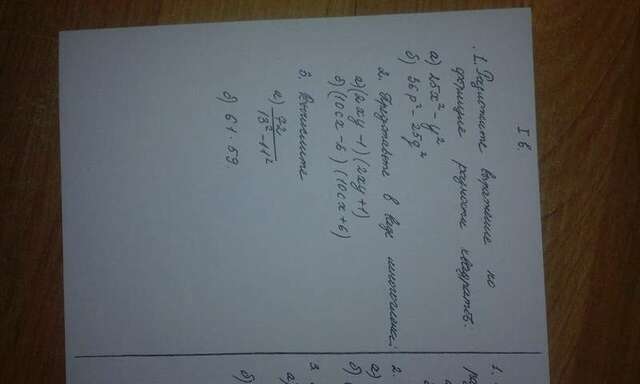 I в.
1. Разложите выражение по
формуле разности квадратов.
а) 25x² - y²
б) 36p² - 25q²
2. Представьте в виде многочлена:
а) (2xy - 1)(2xy + 1)
б) (10cx - 6)(10cx + 6)
3. Вычислите
а) 72
13² - 11²
б) 61 · 59
1.
ра
2.
а)
б)
3.
а)
б)